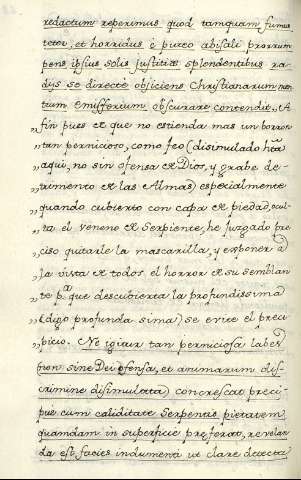 redactum reperimus quod tamquam fumus
teter, et horridus è puteo abisali prorrum
pens ipsius solis justitiæ splendentibus ra
dijs se directè obsiciens Christianarum men
tium emisferium obscurare contendit,, A
,, fin pues de que no estienda mas un borron
,, tan pernicioso, como feo (disimulado hta
,, aqui, no sin ofensa de Dios, y grabe de-
,, trimento de las Almas) especialmente
,, quando cubierto con capa de piedad, ocul-
,, ta el veneno de Serpiente, he juzgado pre
,, ciso quitarle la mascarilla, y exponer a
,, la vista de todos el horror de su semblan
,, te pa. que descubierta la profundissima
,, (digo profunda sima) se evite el preci
,, picio. Ne igitur tan perniciosa labes
(non sine Dei ofensa, et animarum dis-
crimine disimulata) concrescat preci-
pue cum caliditate Serpentis pietatem
quamdam in superficie preferat, revelan
da est facies indumenti ut clare detecta